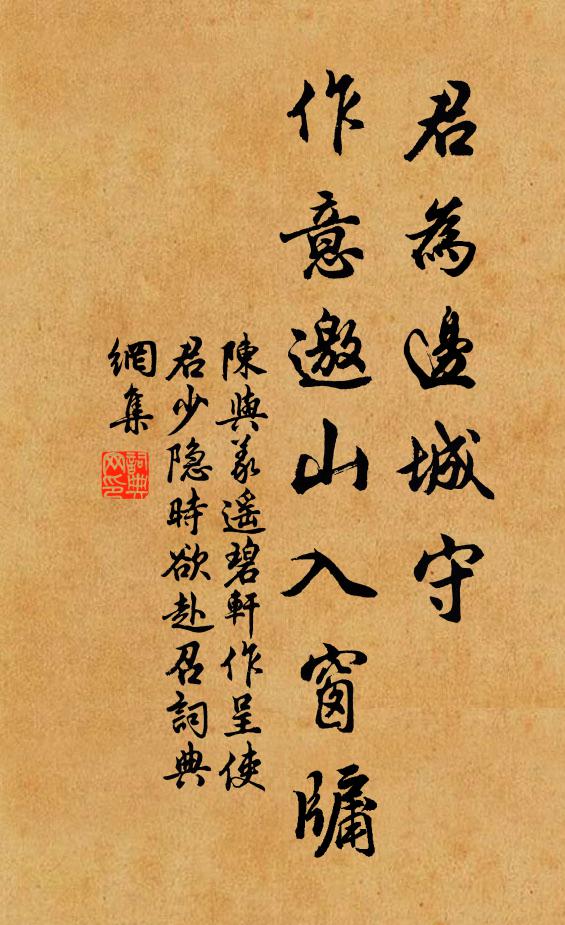 君為邊城守
作意邀山入窗牖
陳與義遥碧軒作呈使
君少隐時欲赴召詞典
網集
詞典
网印